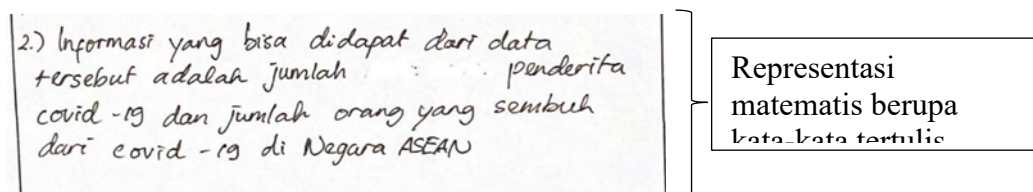 2.) Informasi yang bisa didapat dari data
tersebut adalah jumlah penderita
covid-19 dan jumlah orang yang sembuh
dari covid-19 di Negara ASEAN
Representasi
matematis berupa
kata-kata tertulis